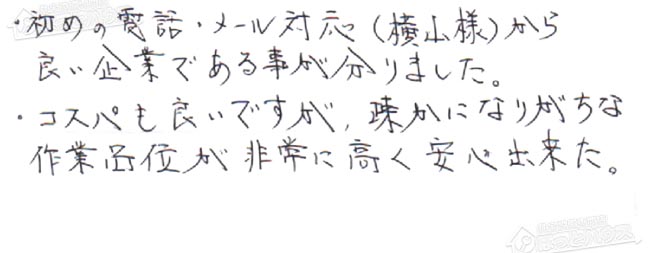 ・初めの電話・メール対応(横山様)から
良い企業である事が分りました。
・コスパも良いですが、疎かになりがちな
作業品位が非常に高く安心出来た。